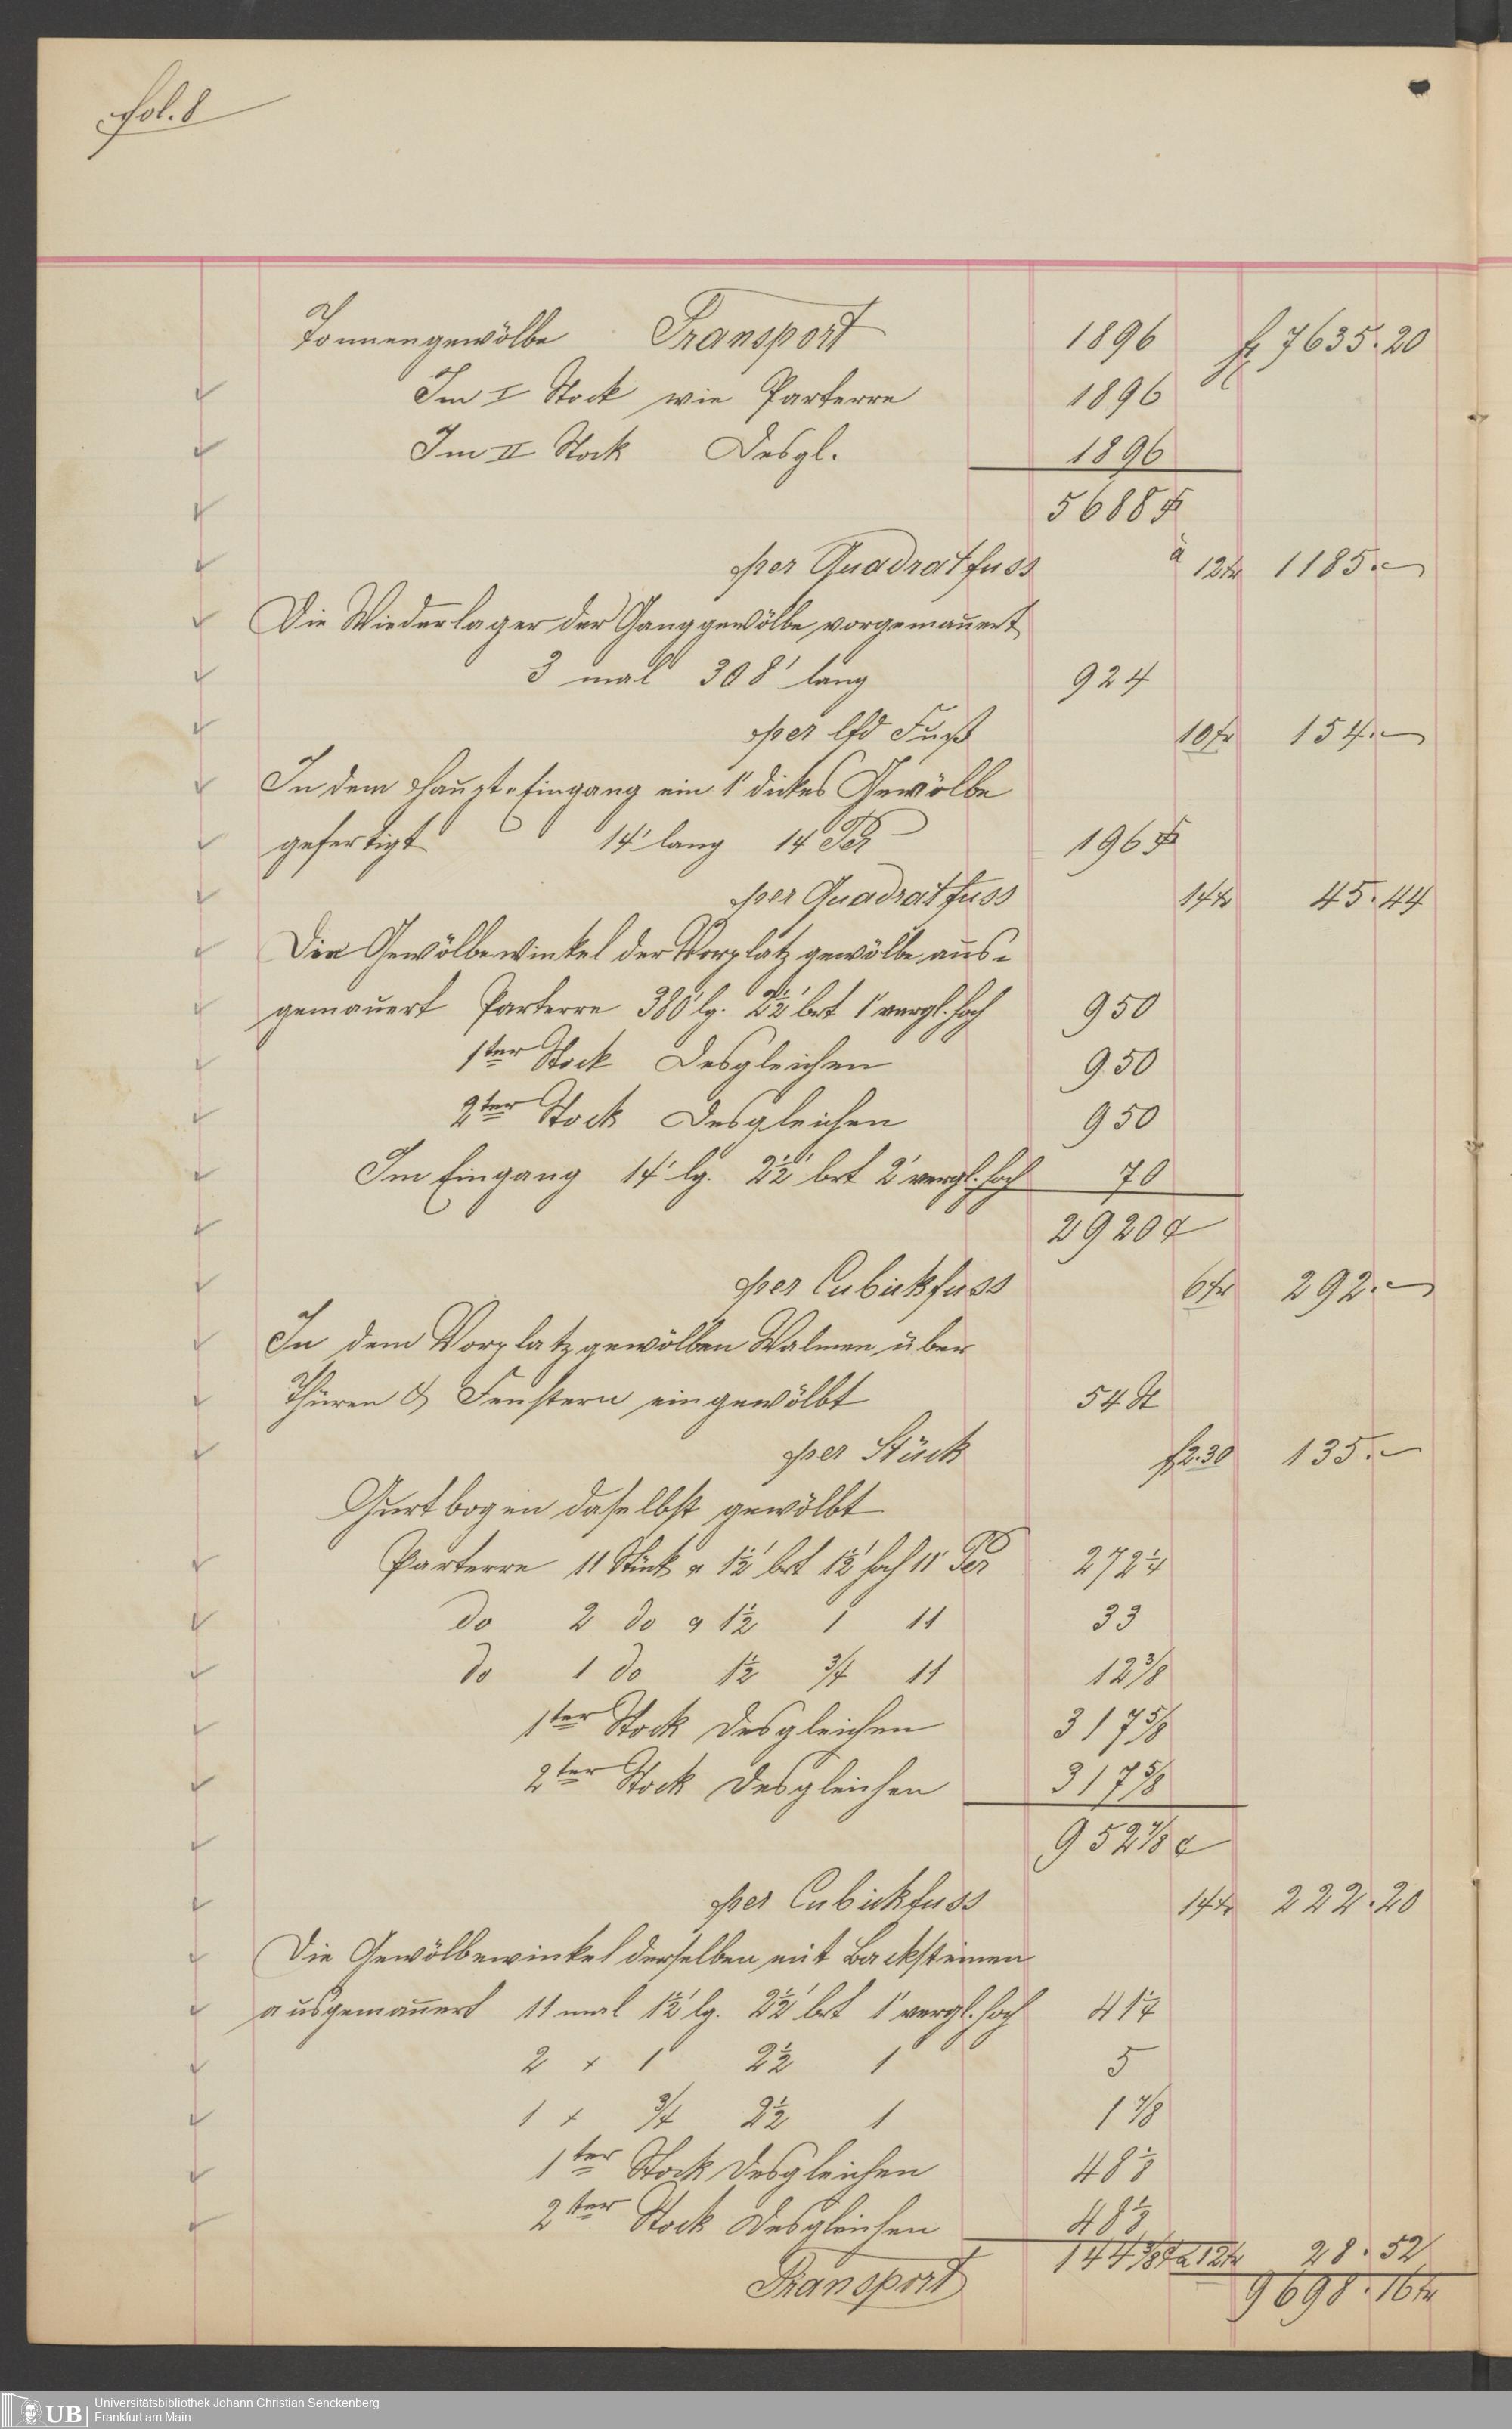 fol. 8
Tonnengewölbe Transport 1896 fl 7635. 20
Im I Stock wie Parterre 1896
Im II Stock Desgl. 1896
5688
per Quadratfuss à 12 kr 1185. —
Die Wiederlager der Ganggewölbe vorgemauert
3 mal 308' lang 924
per lfd Fuß 10 kr 154. —
In dem Haupt-Eingang ein 1' dickes Gewölbe
gefertigt 14' lang 14 Per 196
per Quadratfuss 14 kr 45. 44
Die Gewölbewinkel der Vorplatzgewölbe aus-
gemauert Parterre 380' lg. 2½' brt 1' vergl. hoch 950
1ter Stock Desgleichen 950
2ter Stock Desgleichen 950
Im Eingang 14' lg. 2½' brt 2' vergl. hoch 70
2920 c
per Cubickfuss 6 kr 292. —
In dem Vorplatzgewölben Walmen über
Thüren & Fenstern eingewölbt 54 St
per Stück f 2. 30 135. —
Gurtbogen daselbst gewölbt
Parterre 11 Stück a 1½' brt 1½' hoch 11' Per 272¼
do 2 do a 1½ 1 11 33
do 1 do 1½ ¾ 11 12⅜
1ter Stock Desgleichen 317⅝
2ter Stock Desgleichen 317⅝
952⅞ c
per Cubickfuss 14 kr 222. 20
Die Gewölbewinkel derselben mit Backsteinen
ausgemauert 11 mal 1½' lg. 2½' brt 1' vergl. hoch 41¼
2 × 1 2½ 1 5
1 × ¾ 2½ 1 1⅞
1ter Stock Desgleichen 48⅛
2ter Stock Desgleichen 48⅛
144⅜ c a 12 kr 28. 52
Transport 9698. 16 kr
UB Universitätsbibliothek Johann Christian Senckenberg
Frankfurt am Main